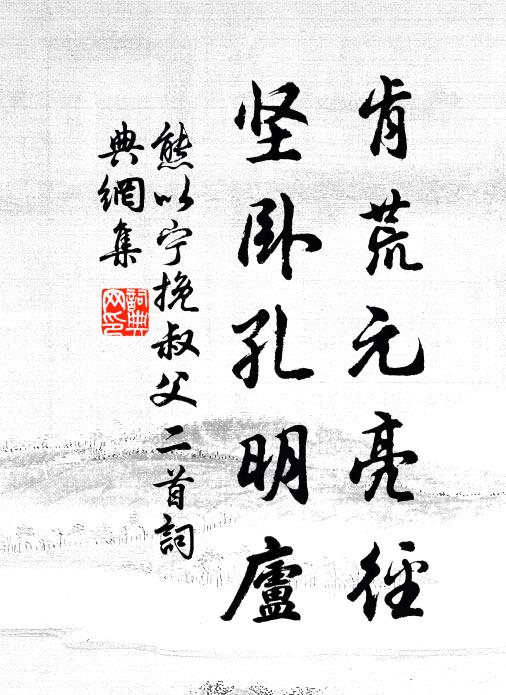 肯荒元亮径
坚卧孔明廬
熊以宁挽叔父二首詞
典網集
詞典網印